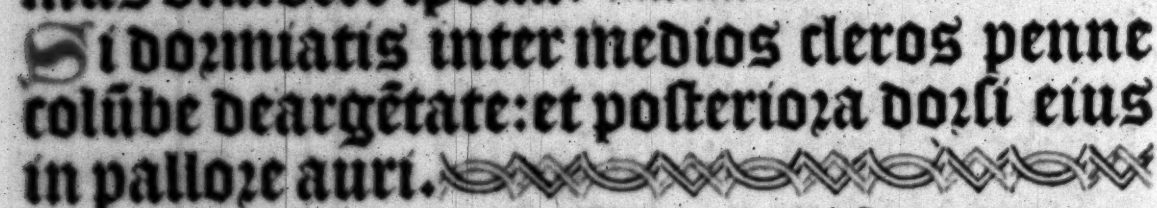 Si dormiatis inter medios cleros penne
colūbe deargētate: et posteriora dorsi eius
in pallore auri.